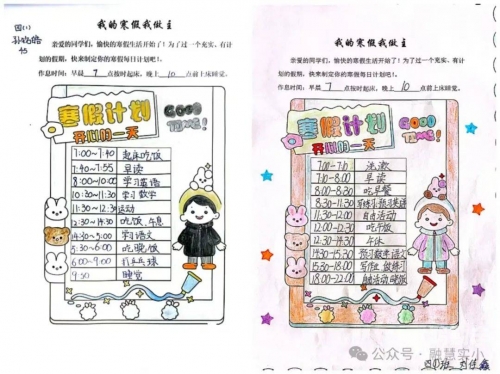 四(1)
45
我的寒假我做主
亲爱的同学们，愉快的寒假生活开始了！为了过一个充实、有计
划的假期，快来制定你的寒假每日计划吧！。
作息时间：早晨 7 点按时起床，晚上 10 点前上床睡觉。
寒假计划
开心的一天
GOOD
TIME!
7:00~7:40 起床吃饭
7:40~7:55 早读
8:00~10:00 学习英语
10:30~11:30 学习数学
11:30~12:30 运动
12:30~14:30 吃饭、午息
14:30~5:00 学习语文
5:30~6:00 吃晚饭
6:00~9:00 打乒乓球
9:30 睡觉
我的寒假我做主
亲爱的同学们，愉快的寒假生活开始了！为了过一个充实、有计
划的假期，快来制定你的寒假每日计划吧！。
作息时间：早晨 7 点按时起床，晚上 10 点前上床睡觉。
寒假计划
开心的一天
GOOD
TIME!
7:00-7:10 洗漱
7:10-8:00 早读
8:00-8:30 吃早餐
8:30-11:30 预习英语
11:30-12:00 自由活动
12:00-12:30 吃午饭
12:30-14:30 午休
14:30-15:30 预习数学语文
15:30-18:00 写作业 做练习
18:00-22:00 自由活动 晚饭
公众号·融慧实小